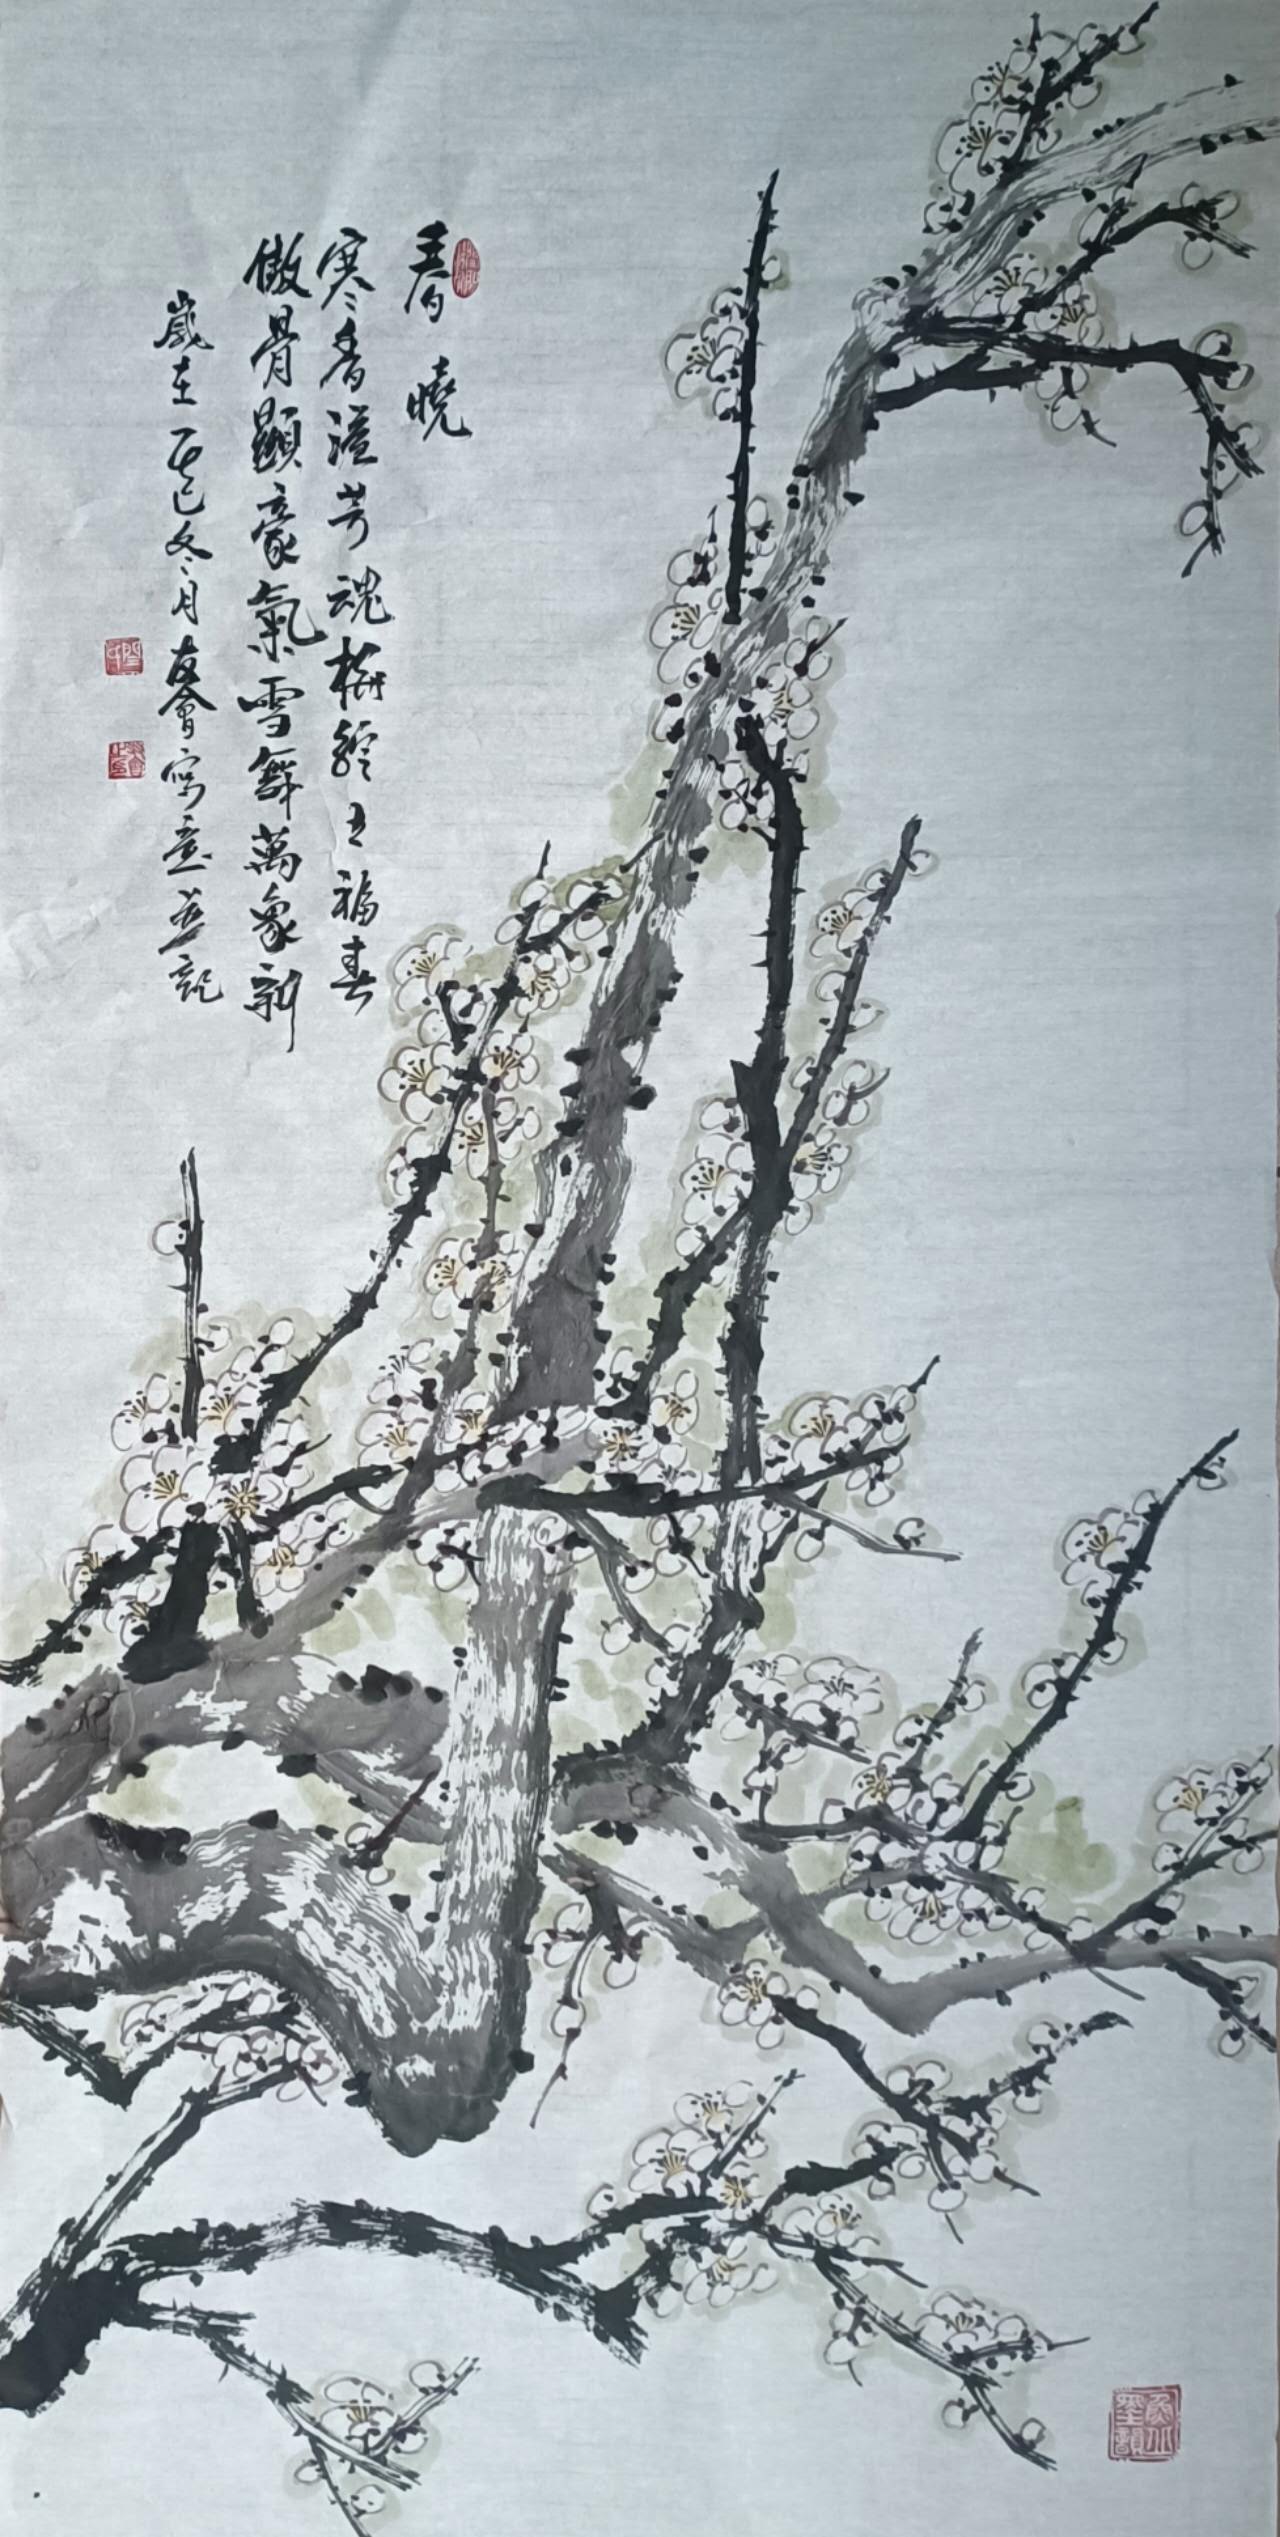 春曉
寒香溢芳魂梅綻五福春
傲骨顯豪氣雪舞萬象新
歲在乙巳冬月友會寫意並記